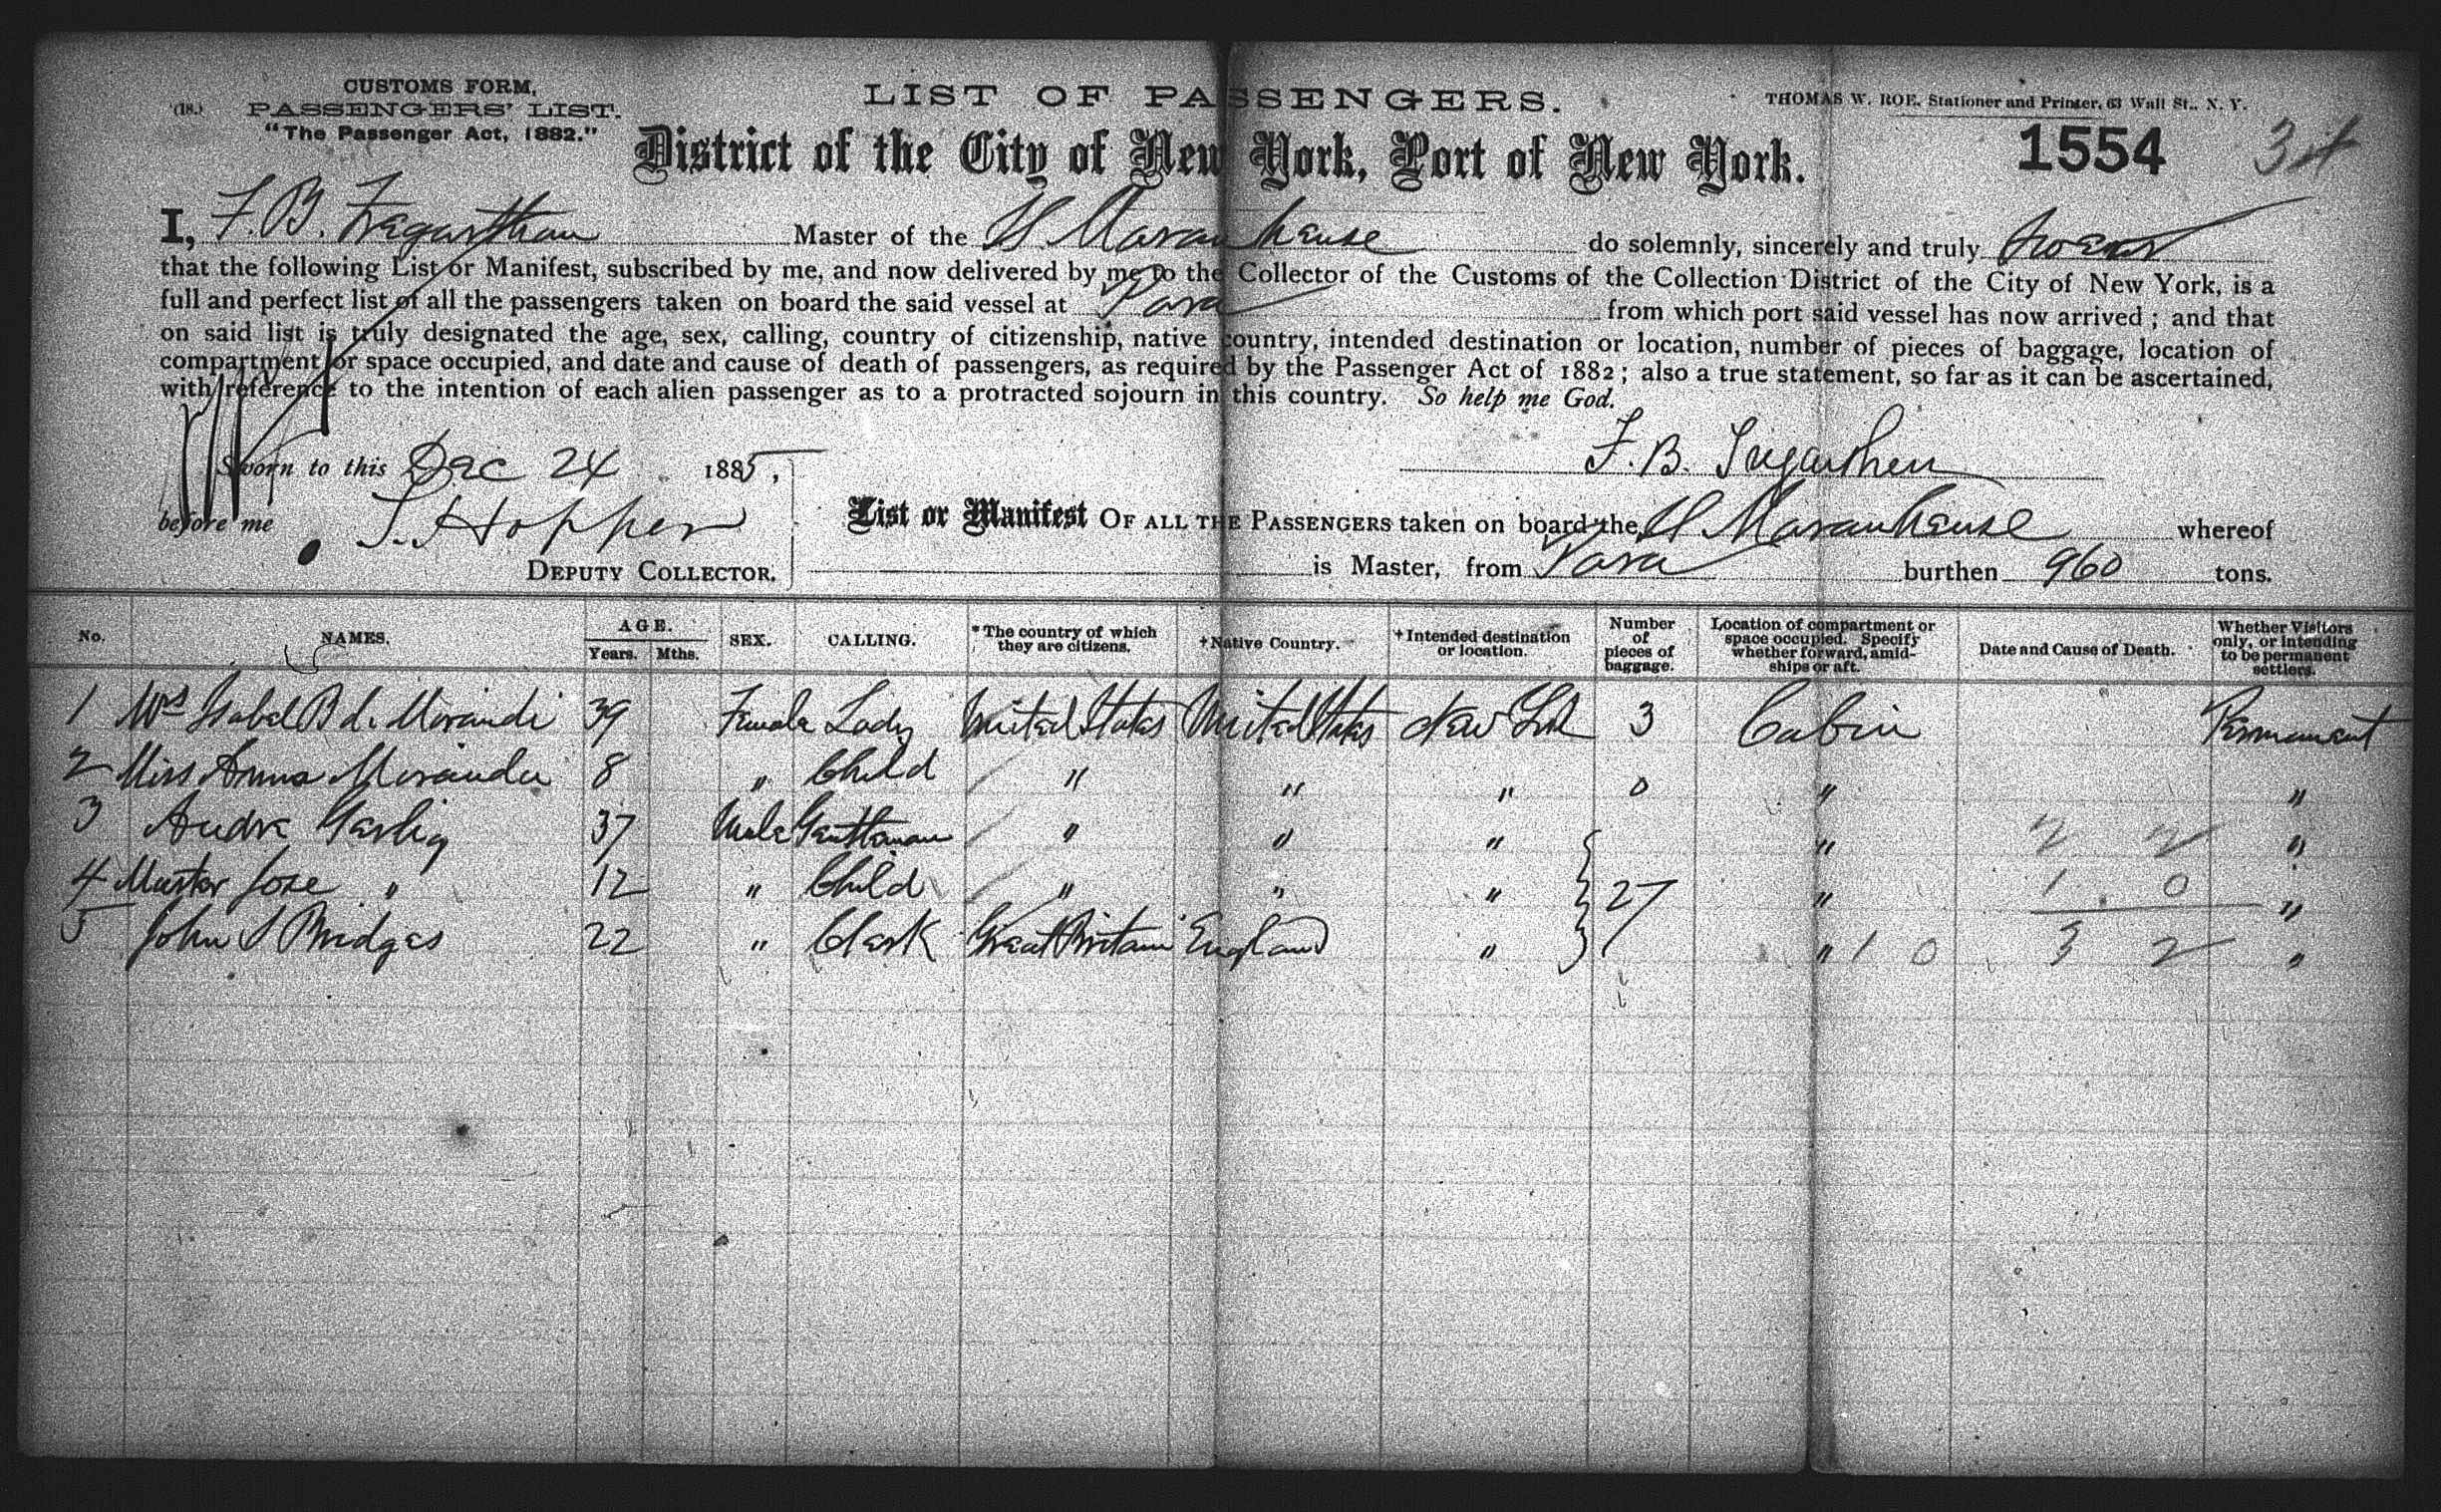 CUSTOMS FORM,
(18.) PASSENGERS' LIST.
"The Passenger Act, 1882."
LIST OF PASSENGERS.
THOMAS W. ROE, Stationer and Printer, 63 Wall St., N. Y.
District of the City of New York, Port of New York.
1554
I, F. B. Master of the do solemnly, sincerely and truly swear
that the following List or Manifest, subscribed by me, and now delivered by me to the Collector of the Customs of the Collection District of the City of New York, is a
full and perfect list of all the passengers taken on board the said vessel at Para from which port said vessel has now arrived; and that
on said list is truly designated the age, sex, calling, country of citizenship, native country, intended destination or location, number of pieces of baggage, location of
compartment or space occupied, and date and cause of death of passengers, as required by the Passenger Act of 1882; also a true statement, so far as it can be ascertained,
with reference to the intention of each alien passenger as to a protracted sojourn in this country. So help me God.
F. B.
Sworn to this Dec 24 1885,
before me T. Hopper
DEPUTY COLLECTOR.
List or Manifest OF ALL THE PASSENGERS taken on board the whereof
is Master, from Para burthen 960 tons.
No. NAMES. AGE. Years. Mths. SEX. CALLING. *The country of which they are citizens. +Native Country. +Intended destination or location. Number of pieces of baggage. Location of compartment or space occupied. Specify whether forward, amidships or aft. Date and Cause of Death. Whether Visitors only, or intending to be permanent settlers.
1 Mrs Isabel B d. 39 Female Lady United States United States New York 3 Cabin Permanent
2 Miss Anna 8 " Child " " " 0 " "
3 37 Male Gentleman " " " " 2 2 "
4 Master Jose " 12 " Child " " " 27 " 1 0 "
5 John S Bridges 22 " Clerk Great Britain England " " 1 0 3 2 "